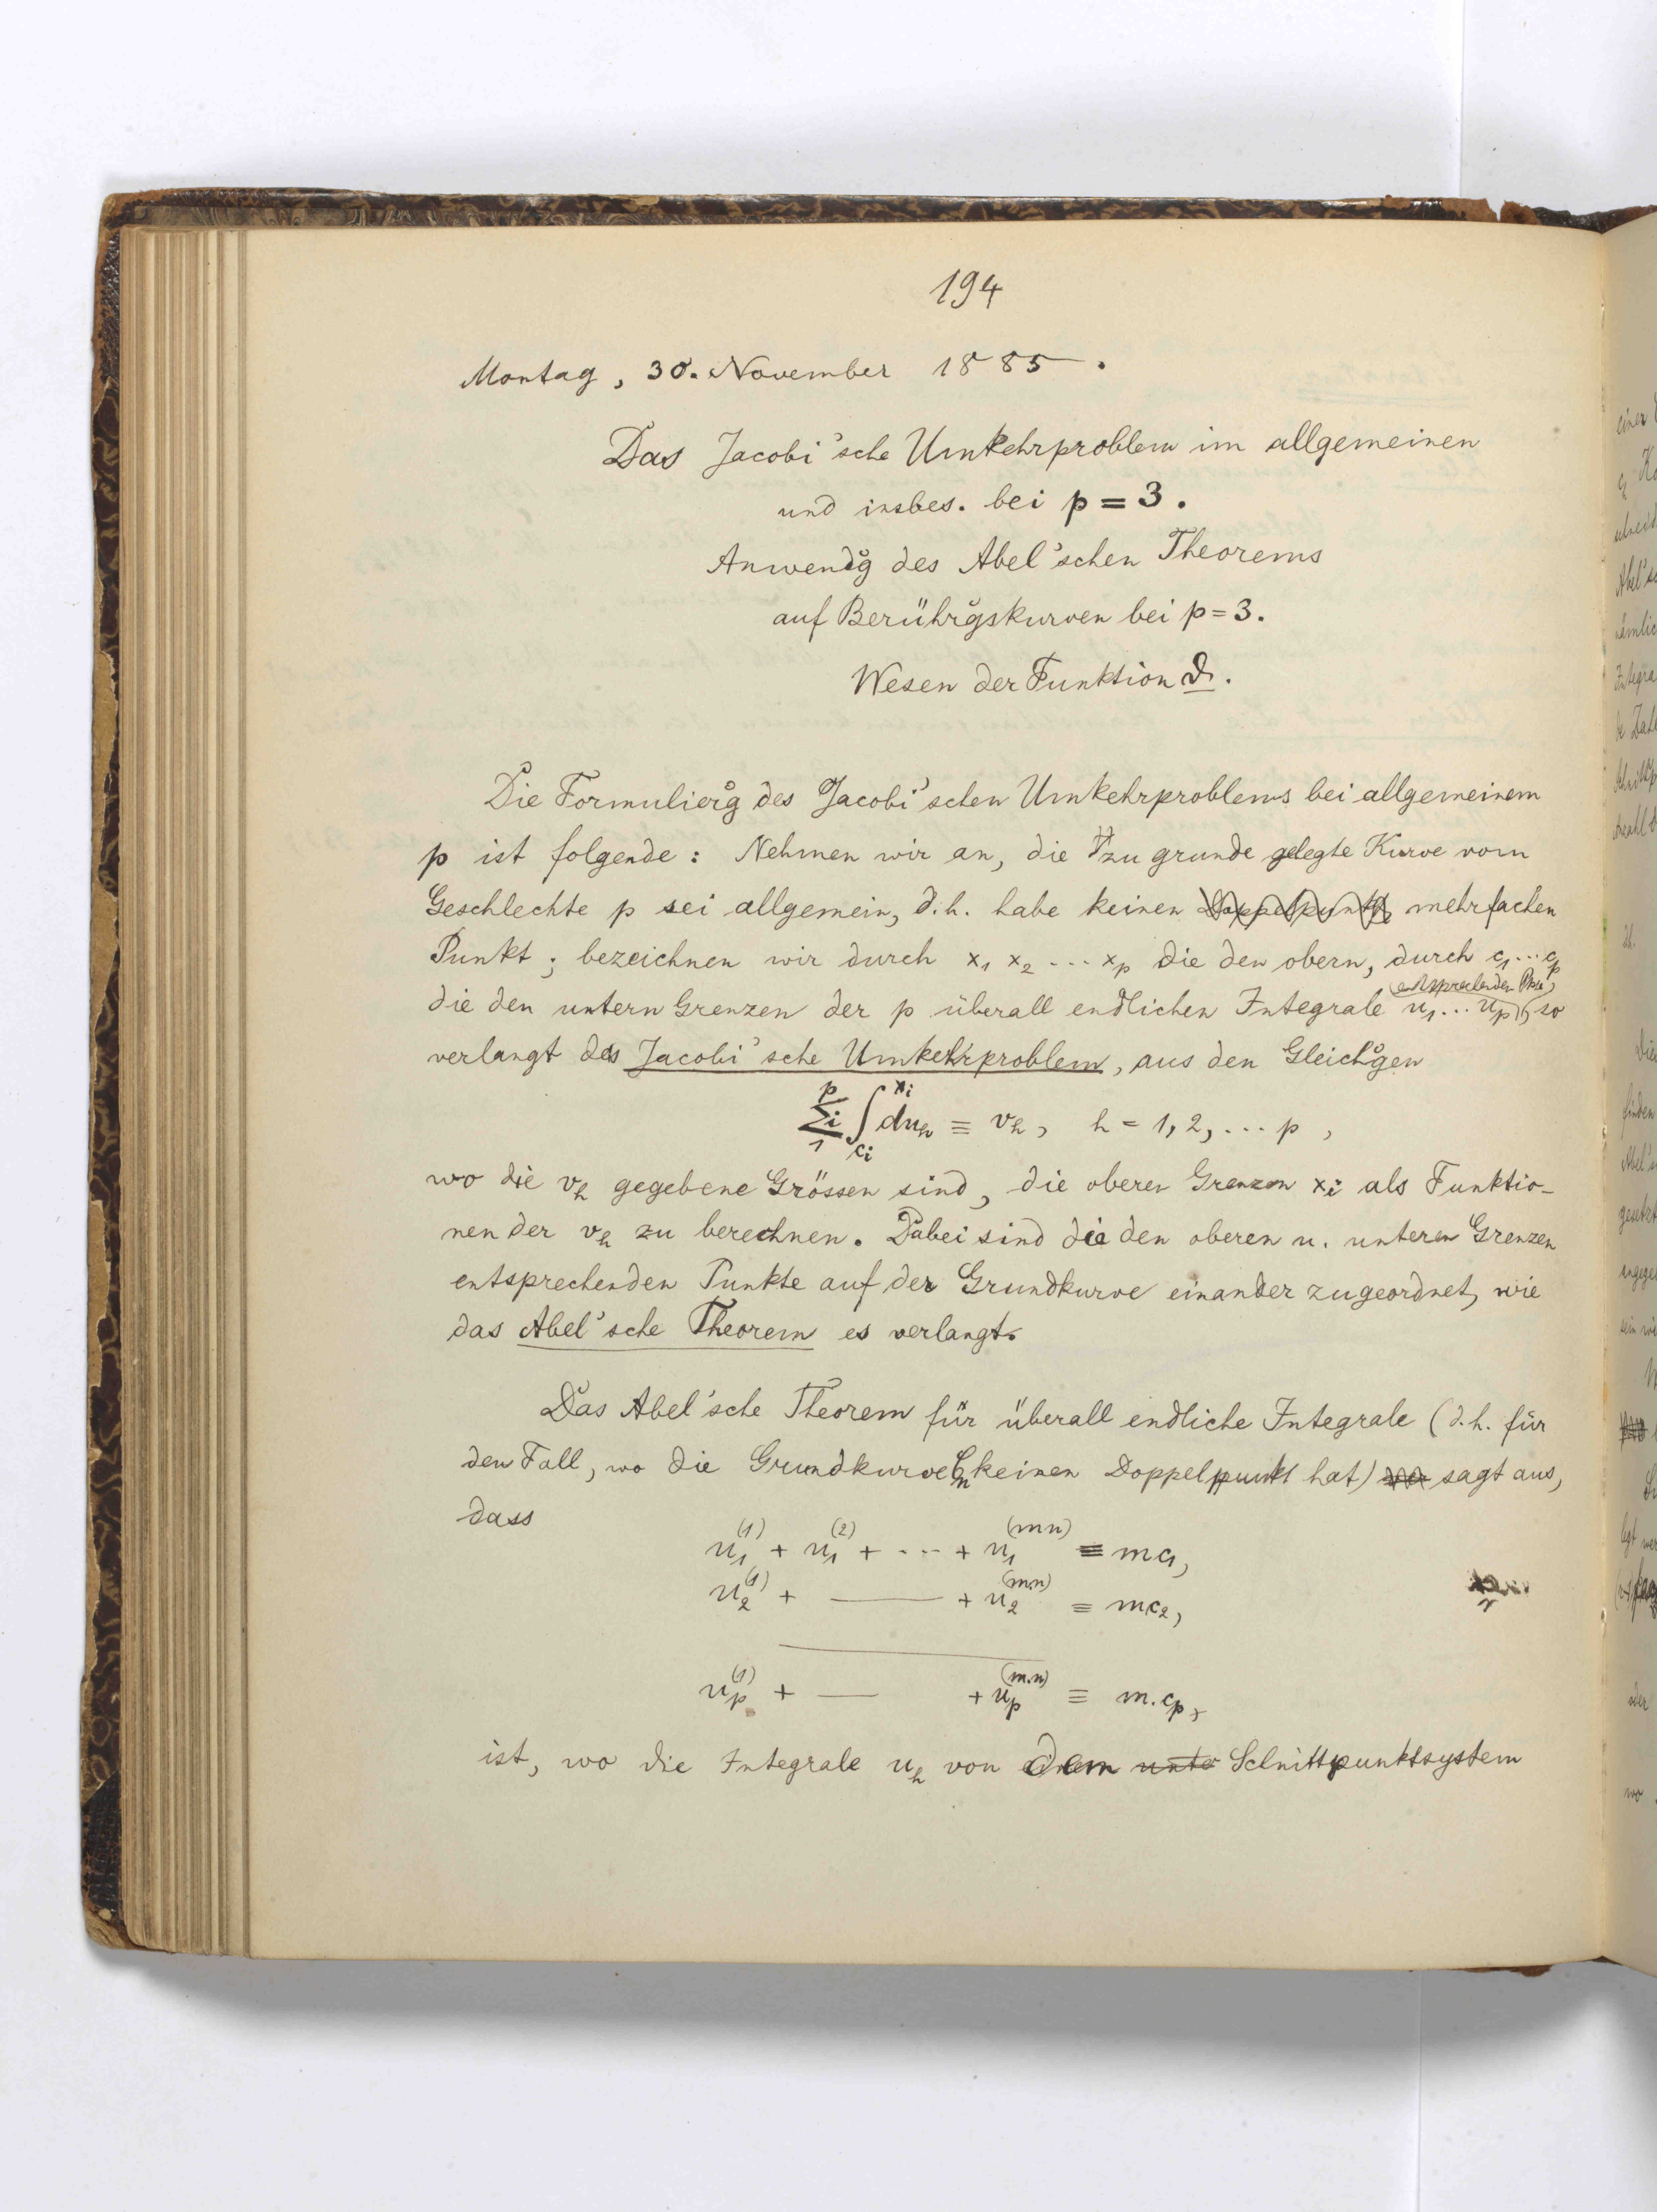 194
Montag, 30. November 1885.
Das Jacobi'sche Umkehrproblem im allgemeinen
und insbes. bei p = 3.
Anwendg des Abel'schen Theorems
auf Berührgskurven bei p = 3.
Wesen der Funktion ϑ.
Die Formulierg des Jacobi'schen Umkehrproblems bei allgemeinem
p ist folgende: Nehmen wir an, die zu grunde gelegte Kurve vom
Geschlechte p sei allgemein, d.h. habe keinen Doppelpunkt mehrfachen
Punkt; bezeichnen wir durch x₁ x₂ ... xₚ die den obern, durch c₁...cₚ
entsprechenden Pkte
die den untern Grenzen der p überall endlichen Integrale u₁...uₚ, so
verlangt das Jacobi'sche Umkehrproblem, aus den Gleichgen
∑ᵢ₁ᵖ ∫_{cᵢ}^{xᵢ} duₕ ≡ vₕ, h = 1, 2, ... p,
wo die vₕ gegebene Grössen sind, die oberen Grenzen xᵢ als Funktio-
nen der vₕ zu berechnen. Dabei sind die den oberen u. unteren Grenzen
entsprechenden Punkte auf der Grundkurve einander zugeordnet, wie
das Abel'sche Theorem es verlangt.
Das Abel'sche Theorem für überall endliche Integrale (d.h. für
den Fall, wo die Grundkurve Cₙ keinen Doppelpunkt hat) sagt aus,
dass
u₁⁽¹⁾ + u₁⁽²⁾ + ... + u₁⁽ᵐⁿ⁾ ≡ mc₁,
u₂⁽¹⁾ + — + u₂⁽ᵐ·ⁿ⁾ ≡ mc₂,
uₚ⁽¹⁾ + — + uₚ⁽ᵐ·ⁿ⁾ ≡ m.cₚ,
ist, wo die Integrale uₕ von dem unte Schnittpunktsystem